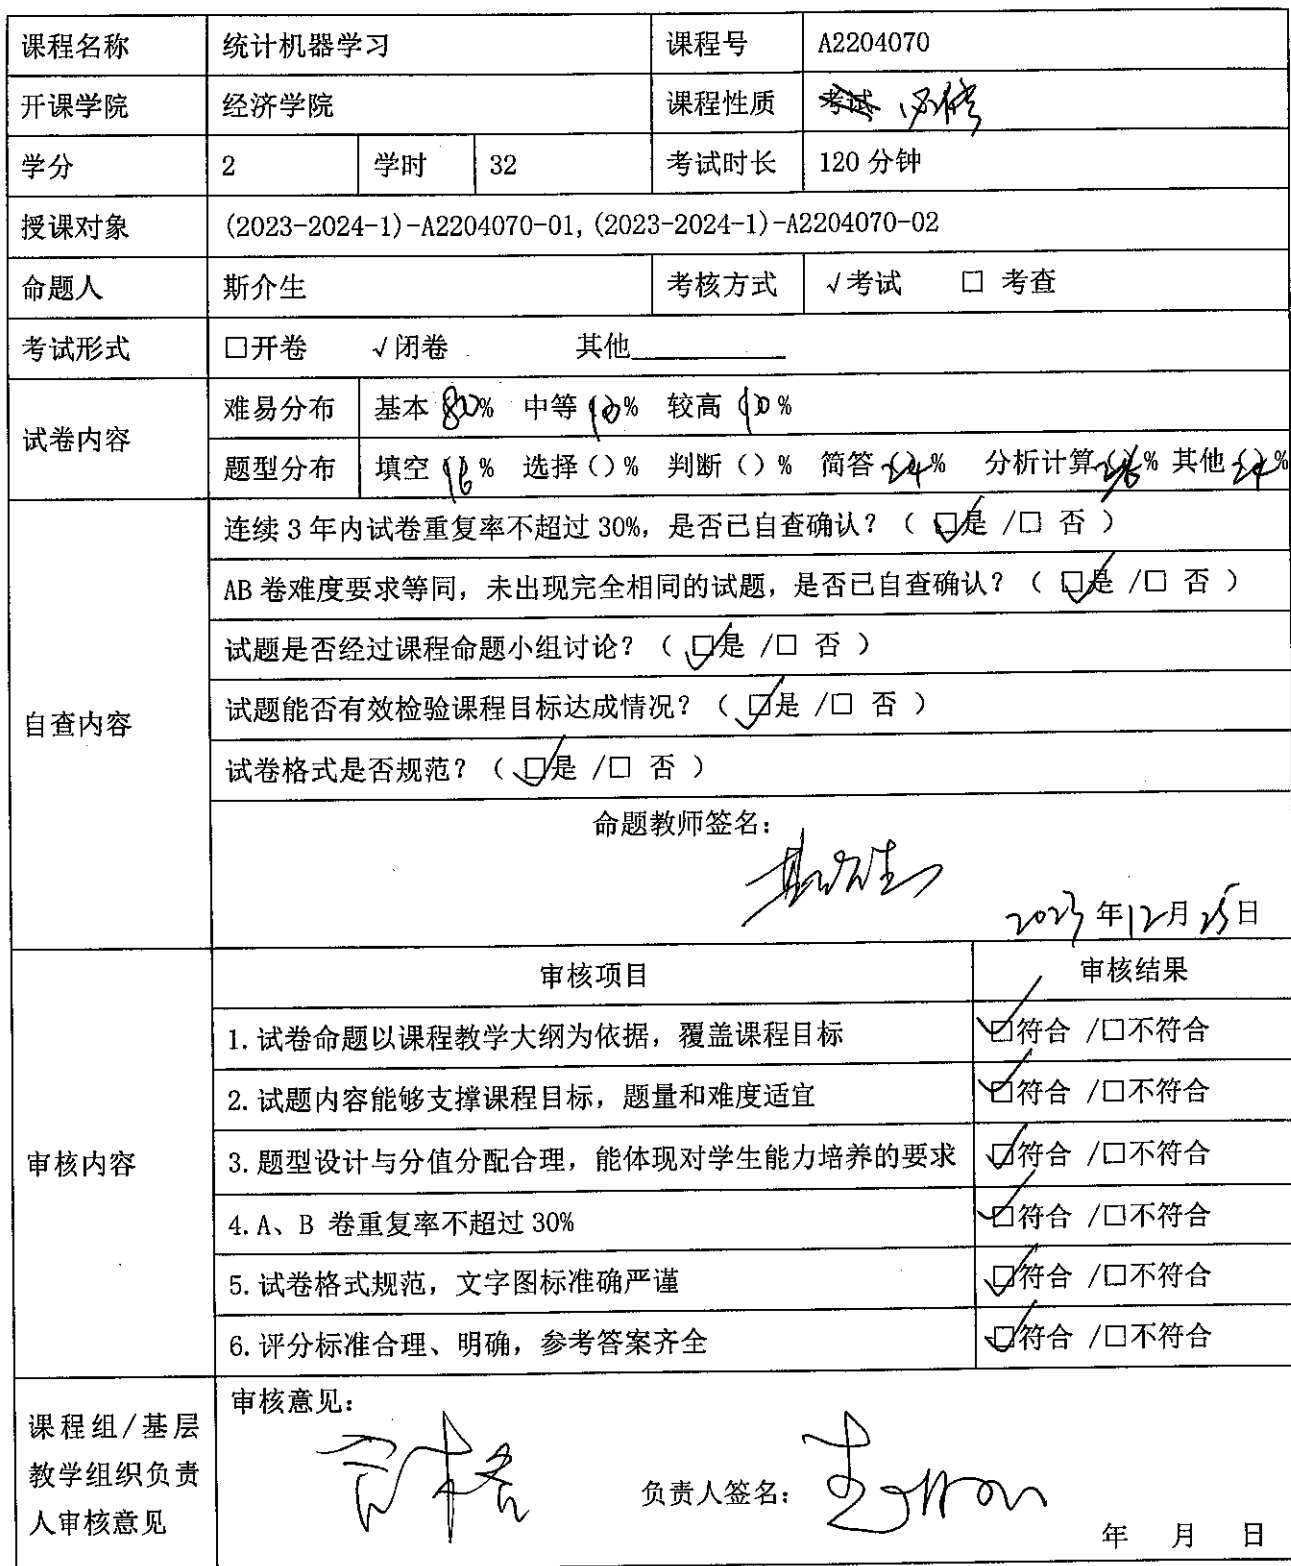 课程名称 统计机器学习 课程号 A2204070
开课学院 经济学院 课程性质 考试 必修
学分 2 学时 32 考试时长 120 分钟
授课对象 (2023-2024-1)-A2204070-01,(2023-2024-1)-A2204070-02
命题人 斯介生 考核方式 √考试 □ 考查
考试形式 □开卷 √闭卷 其他
试卷内容
难易分布 基本(80)% 中等(10)% 较高(10)%
题型分布 填空(16)% 选择()% 判断()% 简答(24)% 分析计算()% 其他(24)%
自查内容
连续 3 年内试卷重复率不超过 30%，是否已自查确认？（ ☑是 /□ 否 ）
AB 卷难度要求等同，未出现完全相同的试题，是否已自查确认？（ ☑是 /□ 否 ）
试题是否经过课程命题小组讨论？（ ☑是 /□ 否 ）
试题能否有效检验课程目标达成情况？（ ☑是 /□ 否 ）
试卷格式是否规范？（ ☑是 /□ 否 ）
命题教师签名：
斯介生
2023 年 12 月 25 日
审核内容
审核项目 审核结果
1.试卷命题以课程教学大纲为依据，覆盖课程目标 ☑符合 /□不符合
2.试题内容能够支撑课程目标，题量和难度适宜 ☑符合 /□不符合
3.题型设计与分值分配合理，能体现对学生能力培养的要求 ☑符合 /□不符合
4.A、B 卷重复率不超过 30% ☑符合 /□不符合
5.试卷格式规范，文字图标准确严谨 ☑符合 /□不符合
6.评分标准合理、明确，参考答案齐全 ☑符合 /□不符合
课程组/基层
教学组织负责
人审核意见
审核意见：
负责人签名：
年 月 日